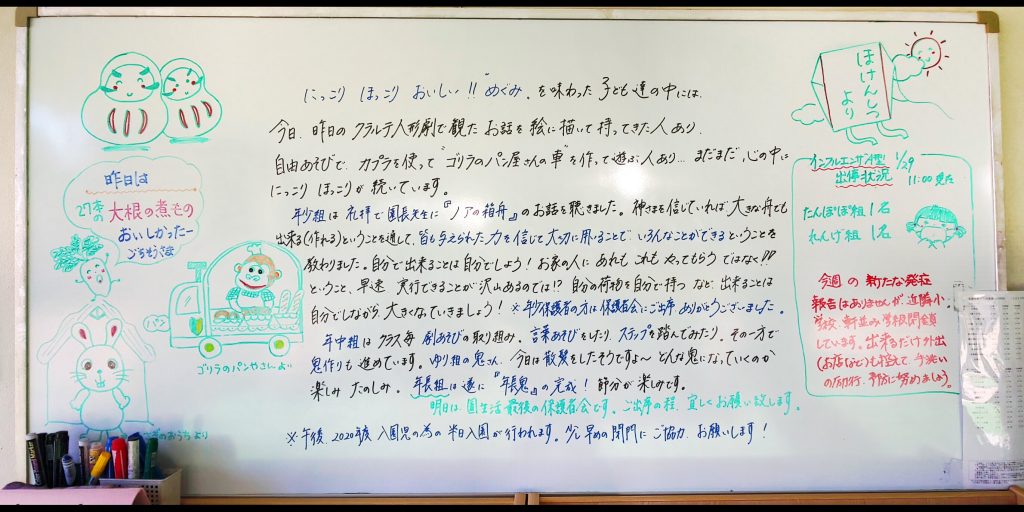 にっこり ほっこり おいしい!! "めぐみ" を味わった 子ども達の中には、
今日、昨日の クラルテ人形劇で観た お話を 絵に描いて 持ってきた人あり、
自由あそびで、カプラを使って "ゴリラのパン屋さんの車" を作って遊ぶ人あり… まだまだ 心の中に
にっこり ほっこりが 続いています。
年少組は 礼拝で園長先生に『ノアの箱舟』のお話を聴きました。神さまを信じていれば 大きな舟でも
出来る(作れる)ということを通して、皆も与えられた力を信じて大切に用いることで いろんなことができる ということを
教わりました。自分で出来ることは自分でしよう! お家の人に あれも これも やってもらう ではなく!!
ということ、早速 実行できることが 沢山あるのでは!? 自分の荷物を自分で持つ など 出来ることは
自分でしながら 大きくなっていきましょう! ※年少保護者の方は保護者会にご出席 ありがとうございました。
年中組は クラス毎 劇あそびの取り組み。言葉あそびをしたり、ステップを踏んでみたり。その一方で
鬼作りも 進めています。ゆり組の鬼さん、今日は散髪をしたそうですよ〜 どんな鬼になっていくのか
楽しみ たのしみ。年長組は遂に『年長鬼』の完成! 節分が楽しみです。
明日は、園生活 最後の保護者会です。ご出席の程、宜しくお願い致します。
※午後、2020年度 入園児の為の 半日入園が行われます。早めの閉門に ご協力 お願いします!
昨日は
27本の 大根の煮もの
おいしかったー
ごちそうさま
パン
ゴリラのパンやさんより
のおうちより
ほけんしつ
より
インフルエンザA型 1/29
出停状況 11:00現在
たんぽぽ組 1名
れんげ組 1名
今週の 新たな発症
報告はありませんが、近隣小
学校、軒並み 学級閉鎖
しています。出来るだけ外出
(お店など)も控えて、手洗い
の励行、予防に努めましょう。